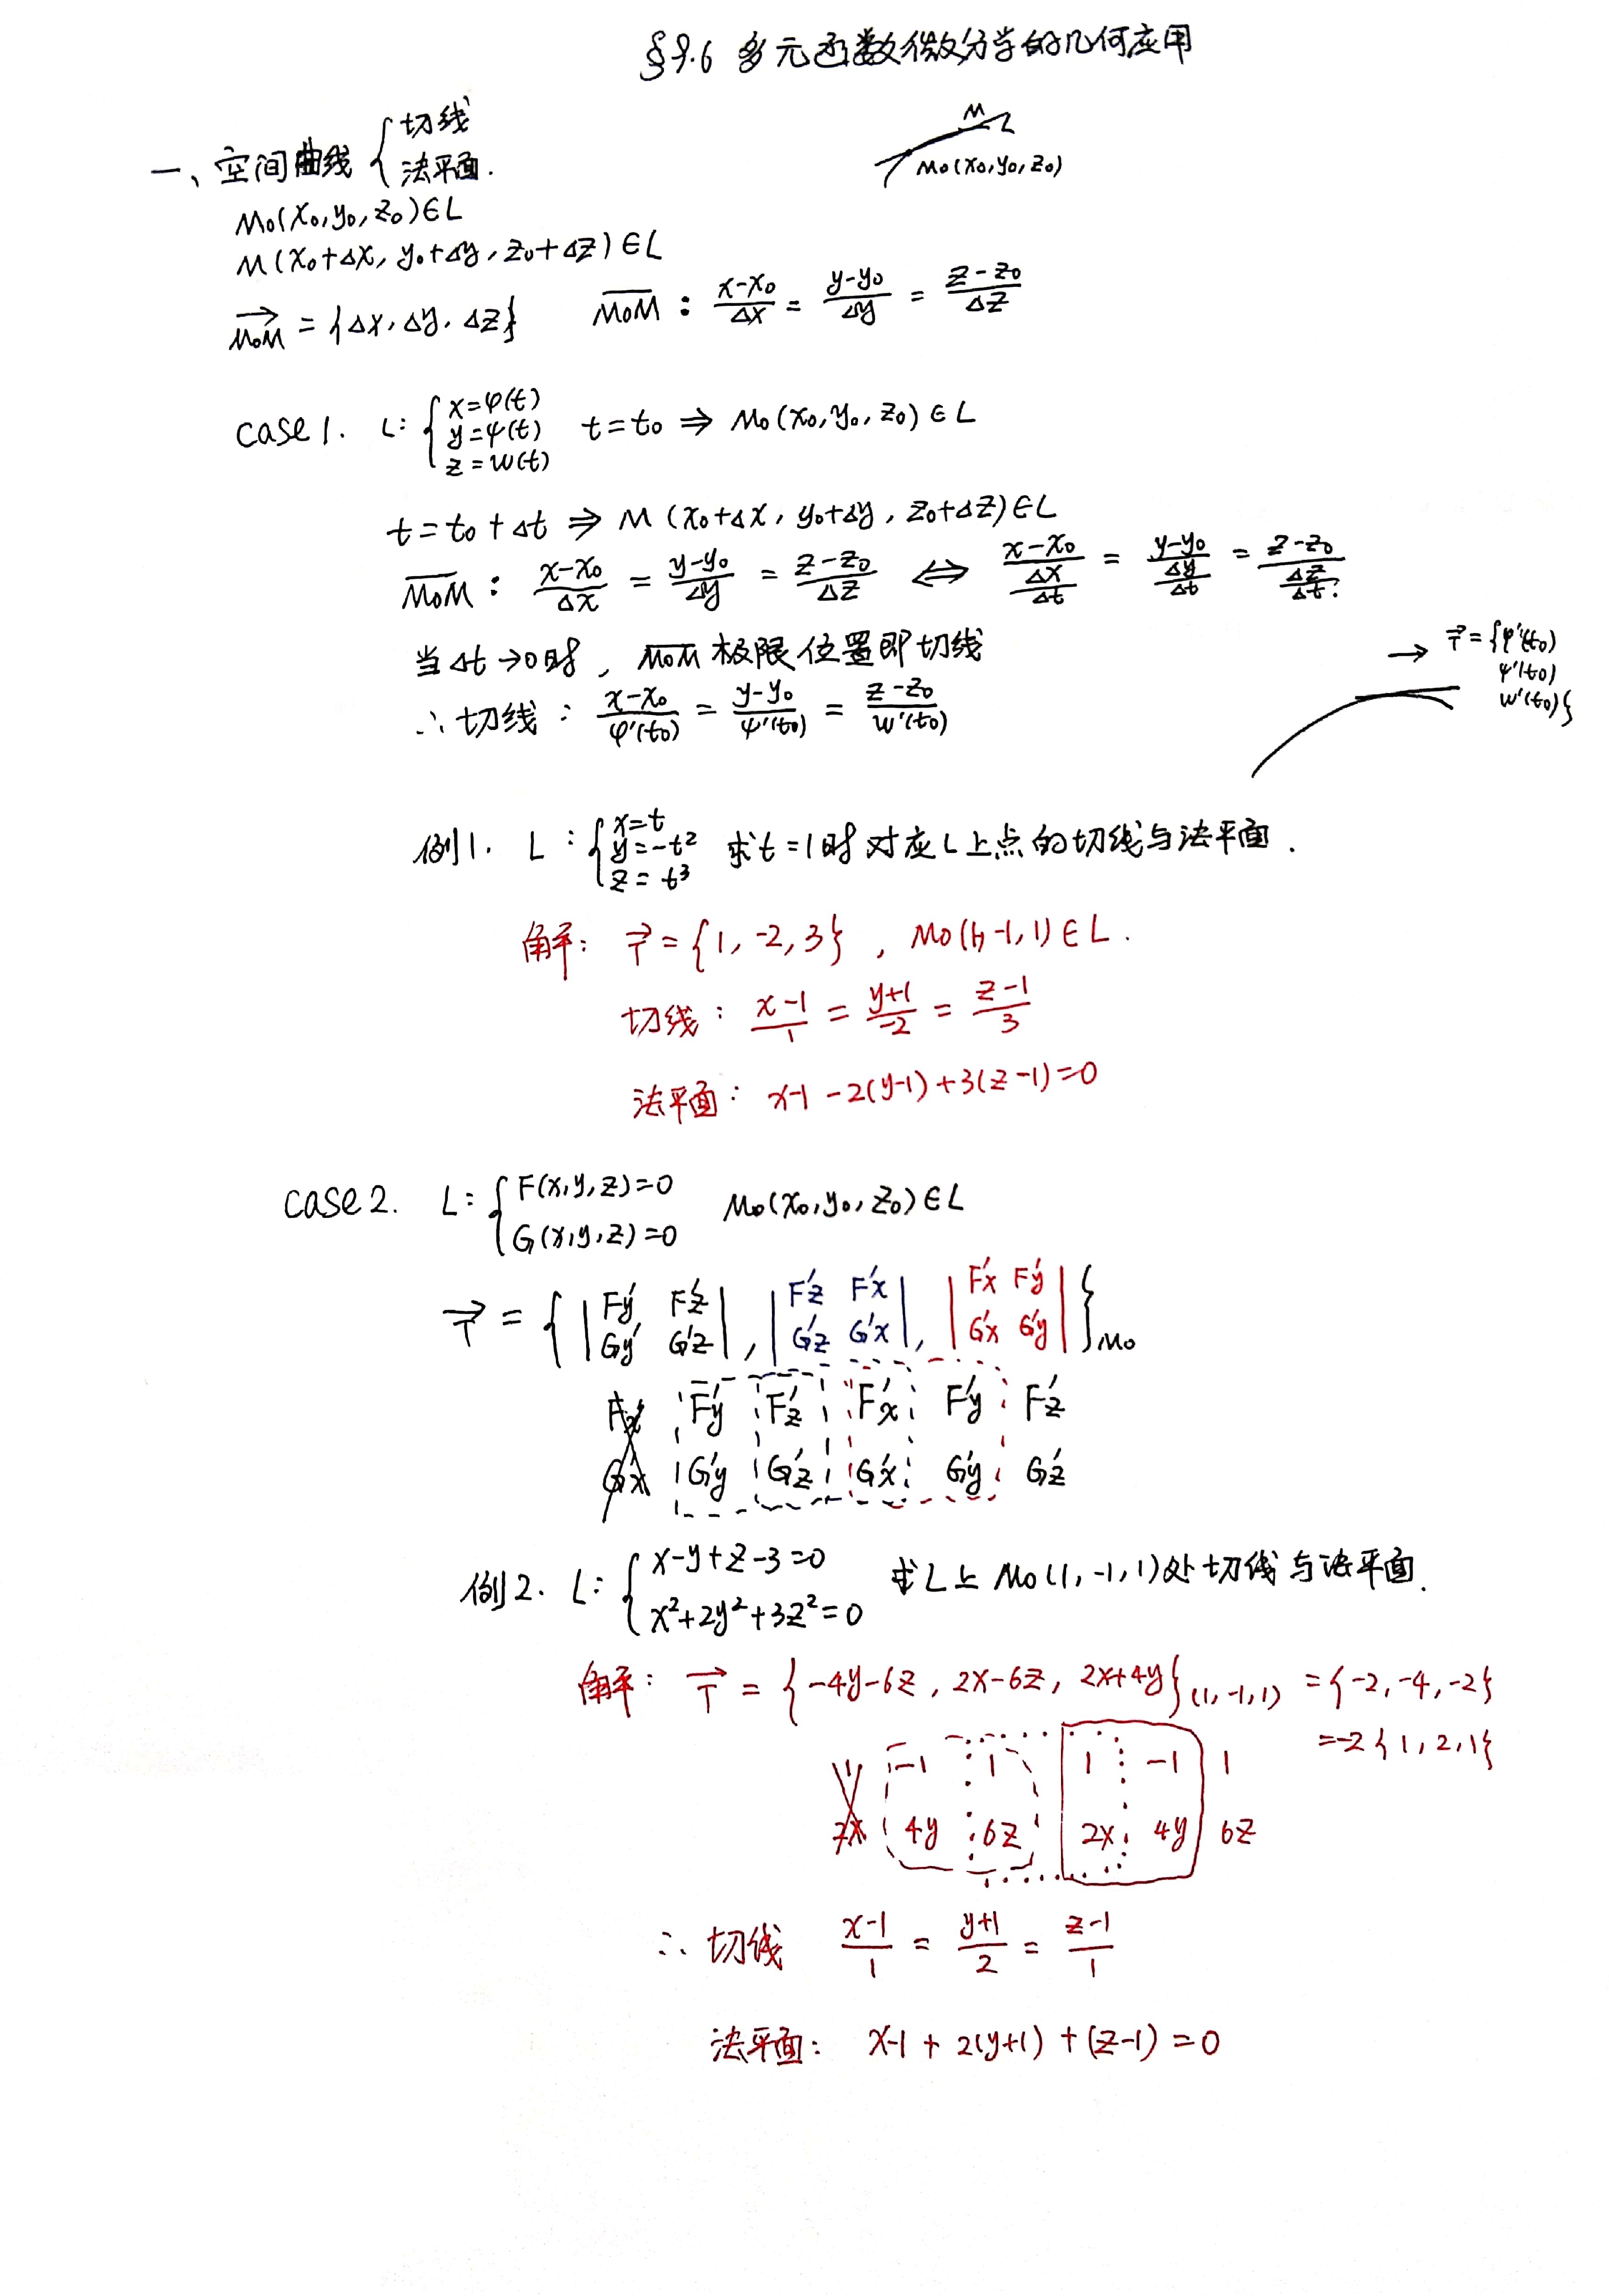 §9.6 多元函数微分学的几何应用
一、空间曲线 { 切线
法平面.
M
M₀(x₀,y₀,z₀)
M₀(x₀,y₀,z₀)∈L
M(x₀+Δx, y₀+Δy, z₀+Δz)∈L
M₀M→ = {Δx, Δy, Δz}   M₀M : (x-x₀)/Δx = (y-y₀)/Δy = (z-z₀)/Δz
case 1. L: { x=φ(t)
y=ψ(t)   t=t₀ ⇒ M₀(x₀,y₀,z₀)∈L
z=w(t)
t=t₀+Δt ⇒ M(x₀+Δx, y₀+Δy, z₀+Δz)∈L
M₀M : (x-x₀)/Δx = (y-y₀)/Δy = (z-z₀)/Δz ⇔ (x-x₀)/(Δx/Δt) = (y-y₀)/(Δy/Δt) = (z-z₀)/(Δz/Δt).
当Δt→0时, M₀M 极限位置即切线
∴ 切线: (x-x₀)/φ'(t₀) = (y-y₀)/ψ'(t₀) = (z-z₀)/w'(t₀)
→ T→={φ'(t₀)
ψ'(t₀)
w'(t₀)}
例1. L: { x=t
y=-t²   求t=1时对应L上点的切线与法平面.
z=t³
解: T→={1, -2, 3}, M₀(1,-1,1)∈L.
切线: (x-1)/1 = (y+1)/-2 = (z-1)/3
法平面: x-1-2(y-1)+3(z-1)=0
case 2. L: { F(x,y,z)=0   M₀(x₀,y₀,z₀)∈L
G(x,y,z)=0
T→ = { | F'y F'z | , | F'z F'x | , | F'x F'y | }M₀
| G'y G'z | | G'z G'x | | G'x G'y |
F'x F'y F'z F'x F'y F'z
G'x G'y G'z G'x G'y G'z
例2. L: { x-y+z-3=0   求L上 M₀(1,-1,1)处切线与法平面.
x²+2y²+3z²=0
解: T→ = {-4y-6z, 2x-6z, 2x+4y}(1,-1,1) = {-2,-4,-2}
=-2{1,2,1}
1 -1 1 1 -1 1
2x 4y 6z 2x 4y 6z
∴ 切线 (x-1)/1 = (y+1)/2 = (z-1)/1
法平面: x-1+2(y+1)+(z-1)=0